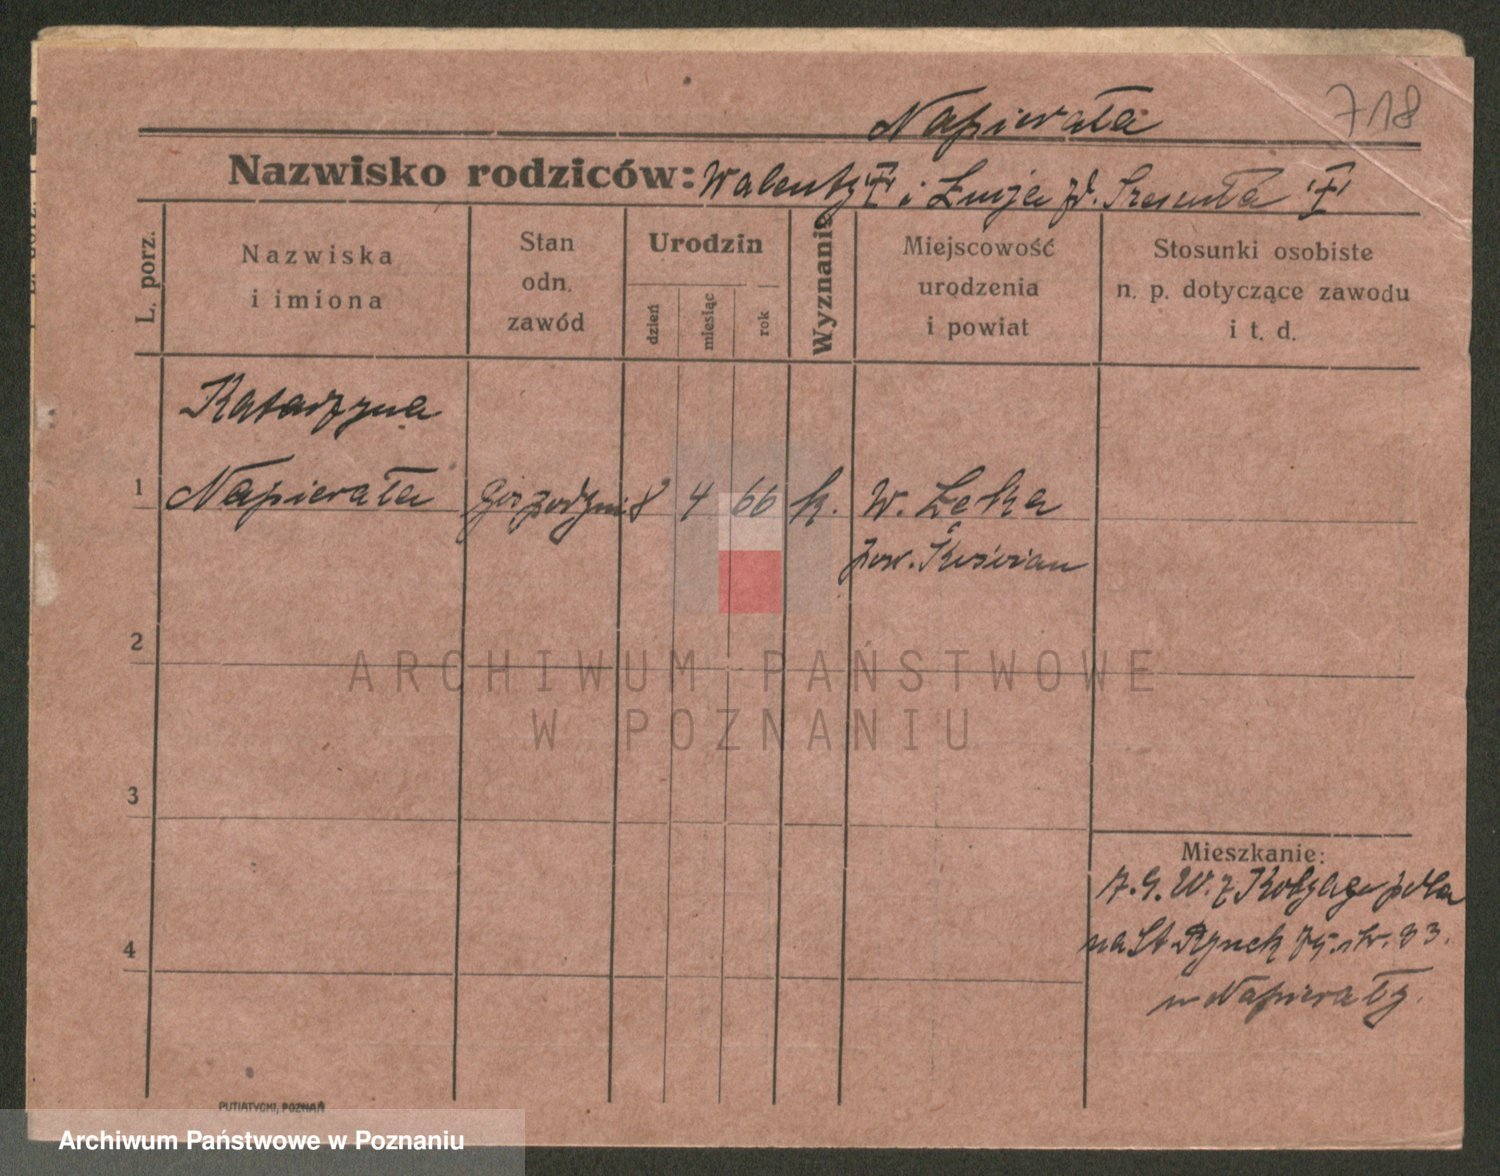 718
Napierała
Nazwisko rodziców: Walenty i Łucja zd.
L. porz.
Nazwiska
i imiona
Stan
odn.
zawód
Urodzin
dzień
miesiąc
rok
Wyznanie
Miejscowość
urodzenia
i powiat
Stosunki osobiste
n. p. dotyczące zawodu
i t. d.
Katarzyna
1 Napierała gospodyni 8 4 66 k. W. Łęka
pow. Kościan
2
ARCHIWUM PAŃSTWOWE
W POZNANIU
3
Mieszkanie:
na St Rynek 75. 33.
4
u Napierały.
PUTIATYCKI, POZNAŃ
Archiwum Państwowe w Poznaniu